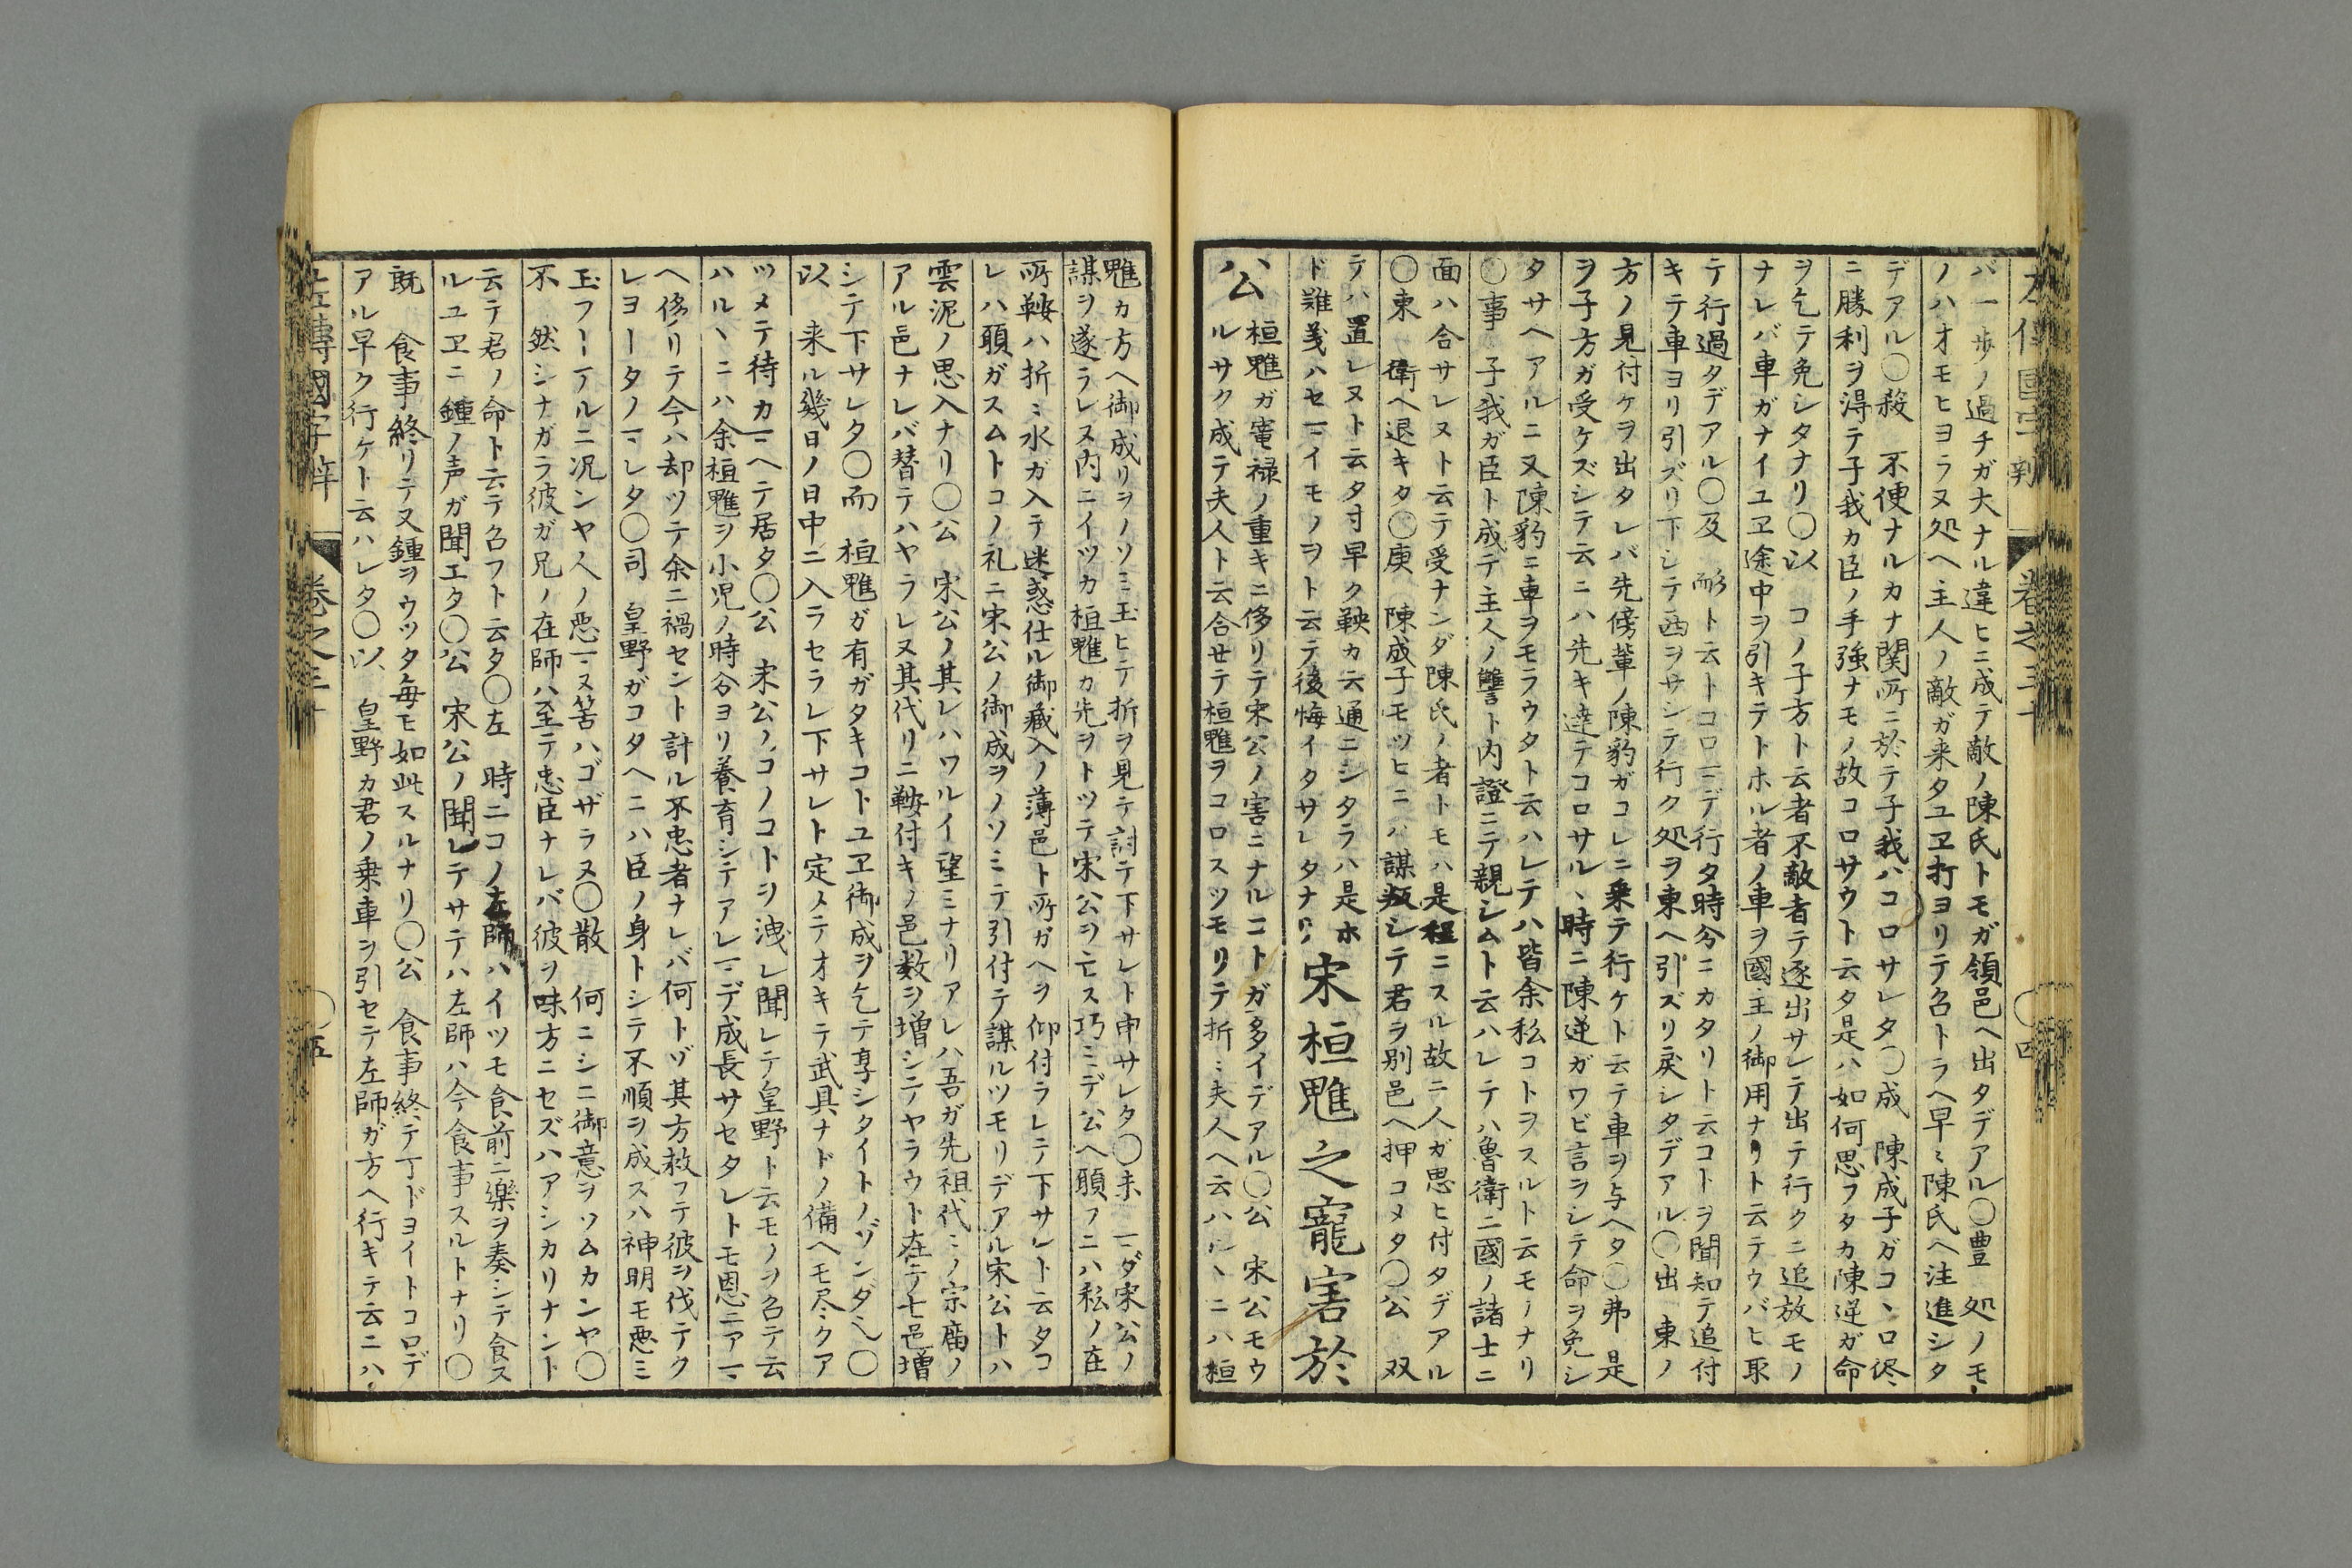 バ一歩ノ過チガ大ナル違ヒニ成テ敵ノ陳氏トモガ領邑ヘ出タデアル〇豊　処ノモ
ノハオモヒヨラヌ処ヘ主人ノ敵ガ来タユヱ打ヨリテ召トラヘ早ミ陳氏ヘ注進シタ
デアル〇殺　不便ナルカナ関所ニ於テ子我ハコロサレタ〇成　陳成子ガコヽロ侭
ニ勝利ヲ得テ子我カ臣ノ手強ナモノ故コロサウト云タ是ハ如何思フタカ陳逆ガ命
ヲ乞テ免シタナリ〇以　コノ子方ト云者不敵者テ逐出サレテ出テ行クニ追放モノ
ナレバ車ガナイユヱ途中ヲ引キテトホル者ノ車ヲ國主ノ御用ナリト云テウバヒ取
テ行過タデアル〇及　耏ト云トコロマデ行タ時分ニカタリト云コトヲ聞知テ追付
キテ車ヨリ引ズリ下シテ西ヲサシテ行ク処ヲ東ヘ引ズリ戻シタデアル〇出　東ノ
方ノ見付ケヲ出タレバ先傍輩ノ陳豹ガコレニ乗テ行ケト云テ車ヲ与ヘタ〇弗　是
ヲ子方ガ受ケズシテ云ニハ先キ達テコロサルヽ時ニ陳逆ガワビ言ヲシテ命ヲ免シ
タサヘアルニ又陳豹ニ車ヲモラウタト云ハレテハ皆余私コトヲスルト云モノナリ
〇事　子我ガ臣ト成テ主人ノ讐ト内證ニテ親シムト云ハレテハ魯衛二國ノ諸士ニ
面ハ合サレヌト云テ受ナンダ陳氏ノ者トモハ是程ニスル故ニ人ガ思ヒ付タデアル
〇東　衛ヘ退キタ〇庚　陳成子モツヒニハ謀叛シテ君ヲ別邑ヘ押コメタ〇公　双
テハ置レヌト云タ寸早ク鞅カ云通ニシタラハ是ホ
ド難義ハセマイモノヲト云テ後悔イタサレタナリ
宋桓魋之寵害於
公
桓魋ガ寵禄ノ重キニ侈リテ宋公ノ害ニナルコトガ多イデアル〇公　宋公モウ
ルサク成テ夫人ト云合せテ桓魋ヲコロスツモリテ折ミ夫人ヘ云ハルヽニハ桓
魋カ方ヘ御成リヲノソミ玉ヒテ折ヲ見テ討テ下サレト申サレタ〇未　マダ宋公ノ
謀ヲ遂ラレヌ内ニイツカ桓魋カ先ヲトツテ宋公ヲ亡ス巧ミデ公ヘ願フニハ私ノ在
所鞍ハ折ミ水ガ入テ迷惑仕ル御蔵入ノ薄邑ト所ガヘヲ仰付ラレテ下サレト云タコ
レハ願ガスムトコノ礼ニ宋公ノ御成ヲノソミテ引付テ謀ルツモリデアル宋公トハ
雲泥ノ思入ナリ〇公　宋公ノ其レハワルイ望ミナリアレハ吾ガ先祖代ミノ宗廟ノ
アル邑ナレバ替テハヤラレヌ其代リニ鞍付キノ邑数ヲ増シテヤラウト在テ七邑増
シテ下サレタ〇而　桓魋ガ有ガタキコトユヱ御成ヲ乞テ享シタイトノゾンダ也〇
以　来ル幾日ノ日中ニ入ラセラレ下サレト定メテオキテ武具ナドノ備ヘモ尽クア
ツメテ待カマヘテ居タ〇公　宋公ノコノコトヲ洩レ聞レテ皇野ト云モノヲ召テ云
ハルヽニハ余桓魋ヲ小児ノ時分ヨリ養育シテアレマデ成長サセタレトモ恩ニアマ
ヘ侈リテ今ハ却ツテ余ニ禍セント計ル不忠者ナレバ何トゾ其方救フテ彼ヲ伐テク
レヨータノマレタ〇司　皇野ガコタヘニハ臣ノ身トシテ不順ヲ成スハ神明モ悪ミ
玉フーアルニ况ンヤ人ノ悪マヌ筈ハゴザラヌ〇散　何ニシニ御意ヲソムカンヤ〇
不　然シナガラ彼ガ兄ノ在師ハ至テ忠臣ナレバ彼ヲ味方ニセズハアシカリナント
云テ君ノ命ト云テ召フト云タ〇左　時ニコノ左師ハイツモ食前ニ楽ヲ奏シテ食ス
ルユヱニ鐘ノ声ガ聞エタ〇公　宋公ノ聞レテサテハ左師ハ今食事スルトナリ〇
既　食事終リテ又鐘ヲウツタ毎モ如此スルナリ〇公　食事終テ丁ドヨイトコロデ
アル早ク行ケト云ハレタ〇以　皇野カ君ノ乗車ヲ引セテ左師ガ方ヘ行キテ云ニハ
左傳國字辨　巻之三十　〇五